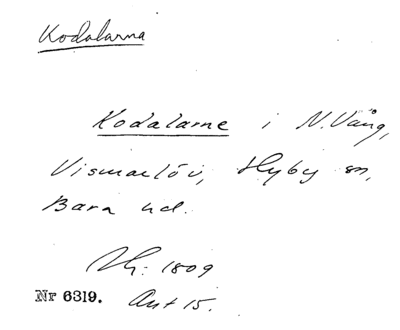 Kodalarna
Kodalarne i N. Vång,
Vismarlöv, Hyby sn,
Bara hd.
1809
Nr 6319. Akt 15.